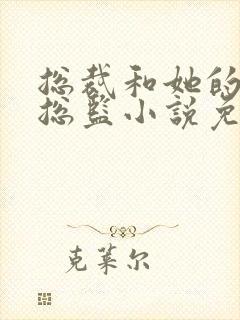 总裁和她的
总监小说免
克莱尔